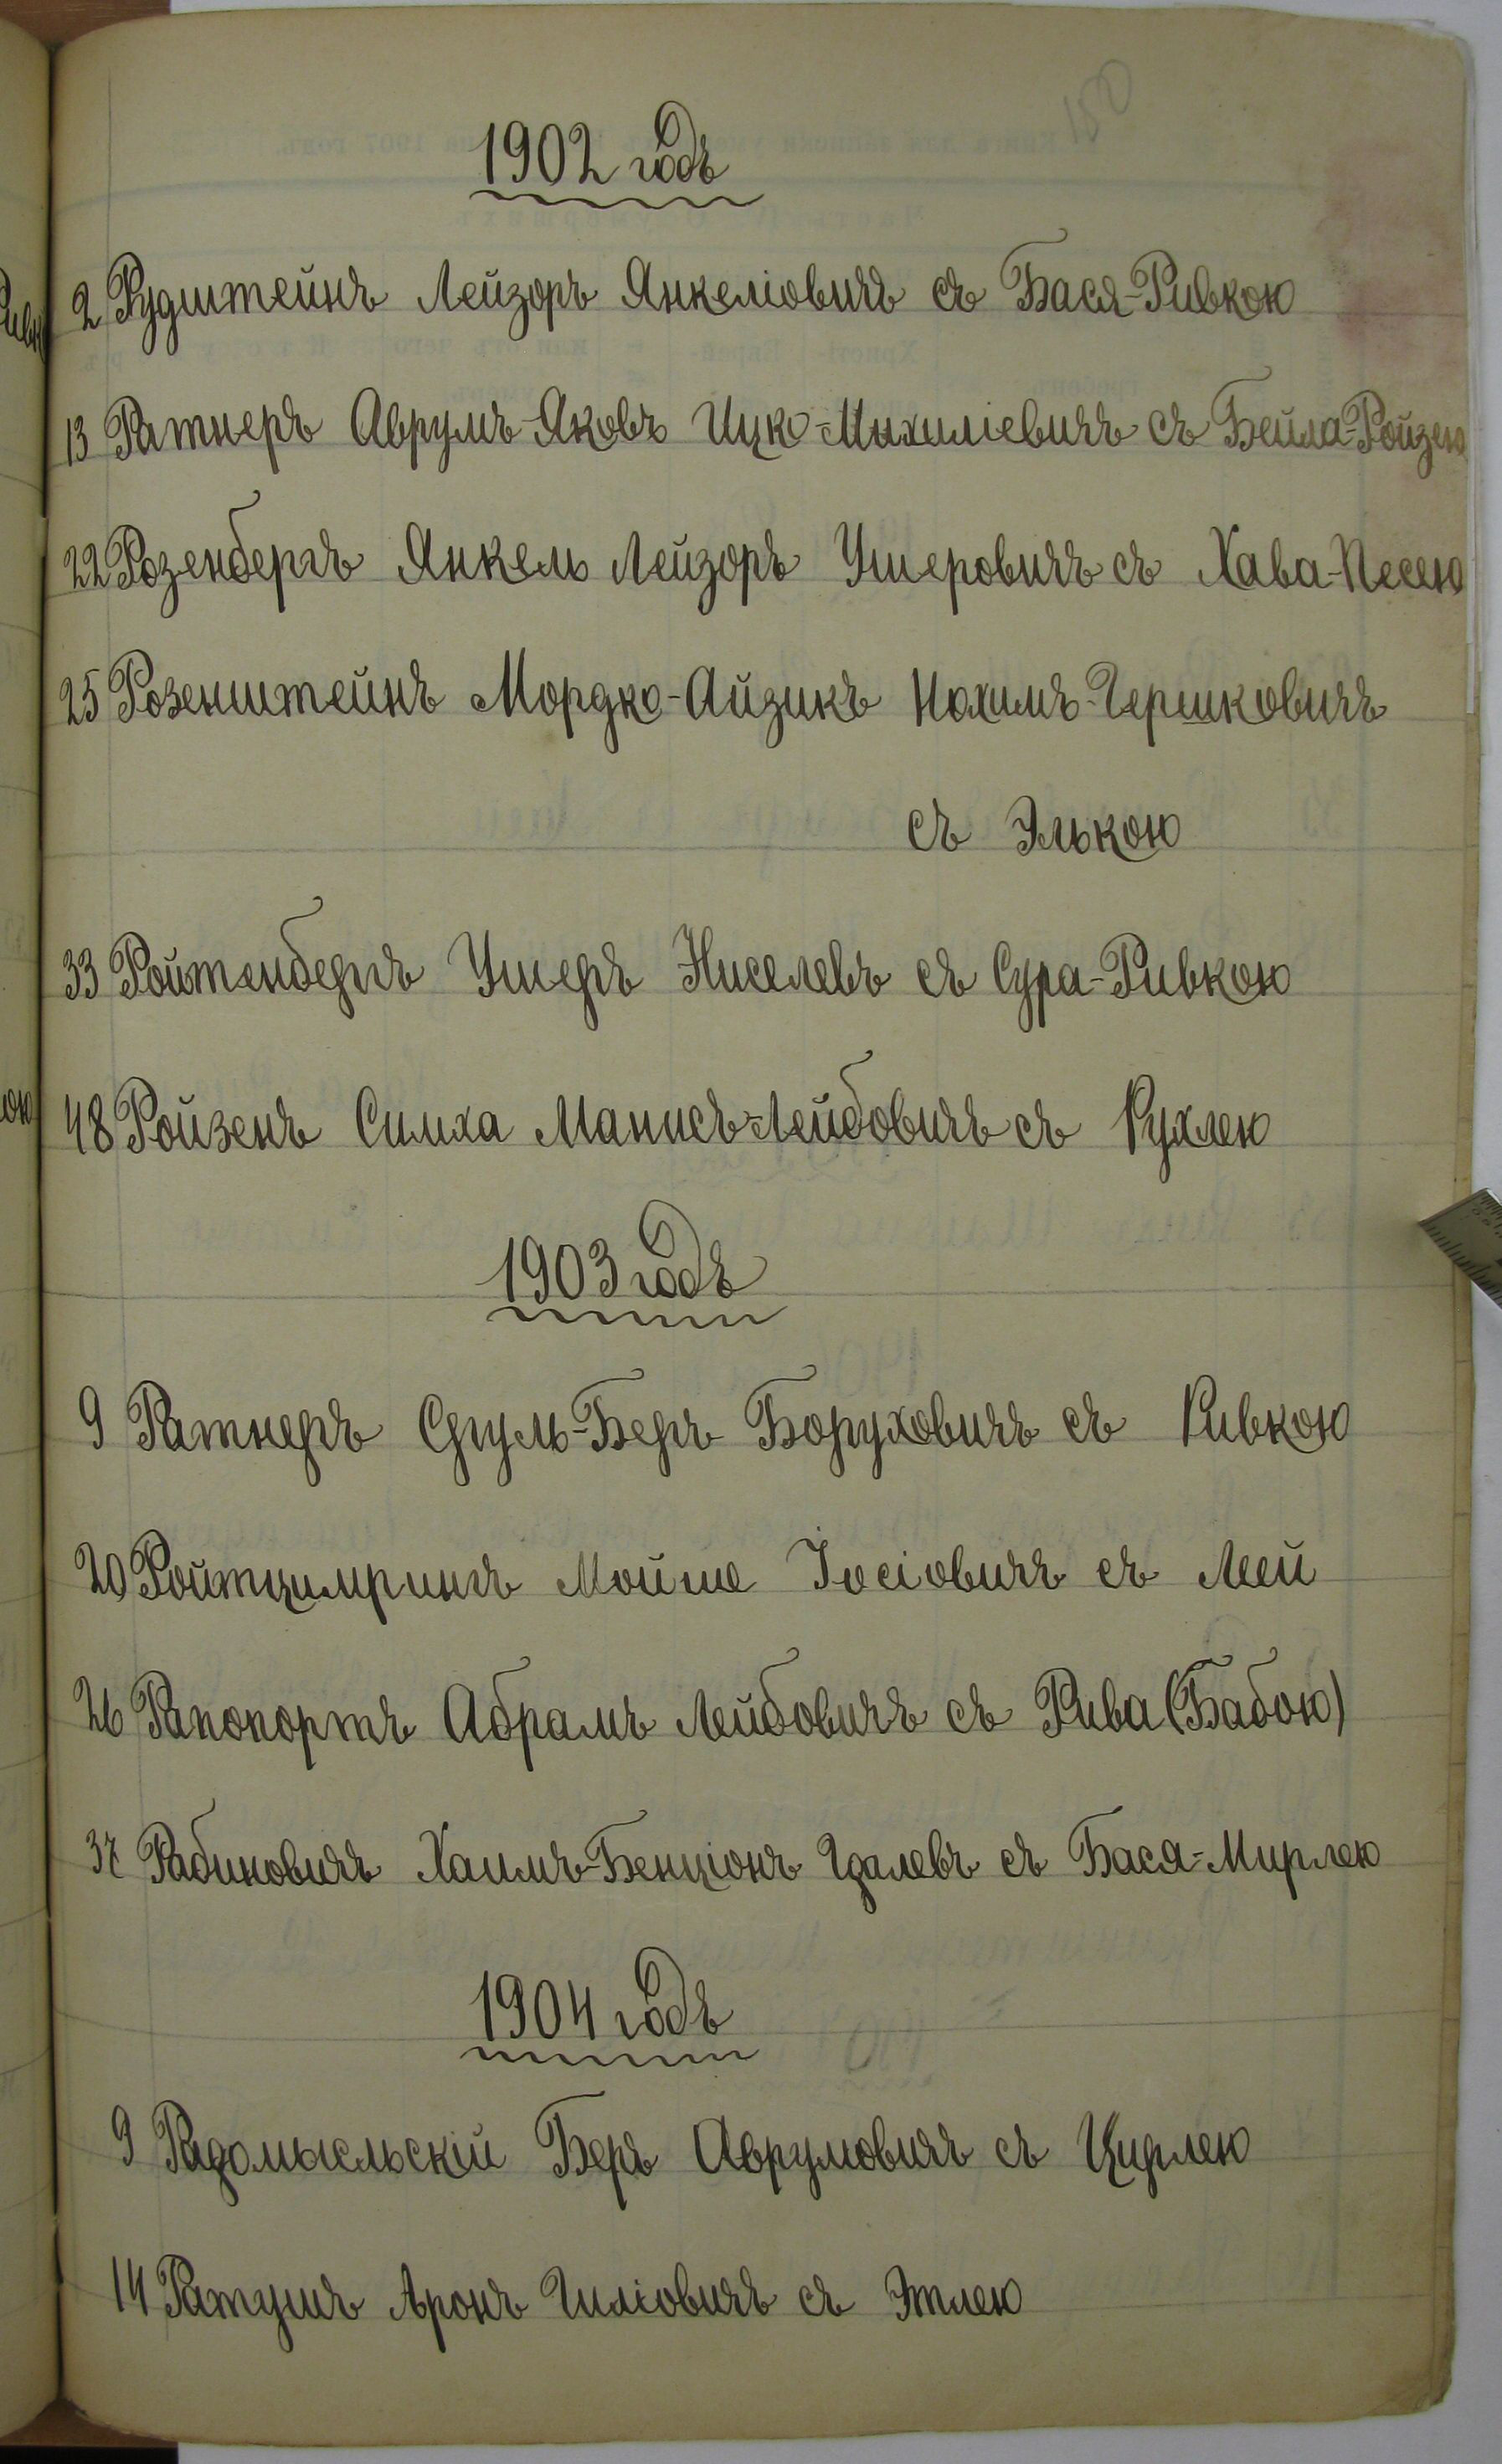 150
1902 годъ
2 Рудштейнъ Лейзоръ Янкеліовичъ съ Бася-Ривкою
13 Ратнеръ Аврумъ-Яковъ Ицко-Михиліевичъ съ Бейла-Ройзею
22 Розенбергъ Янкель Лейзоръ Ушеровичъ съ Хава-Песею
25 Розенштейнъ Мордко-Айзикъ Нохимъ-Гершковичъ
съ Элькою
33 Ройтенбергъ Ушеръ Ниселевъ съ Сура-Ривкою
48 Ройзенъ Симха Манисъ-Лейбовичъ съ Рухлею
1903 годъ
9 Ратнеръ Сруль-Беръ Боруховичъ съ Ривкою
20 Ройтцимрингъ Мойше Іосіовичъ съ Леей
26 Рапопортъ Абрамъ Лейбовичъ съ Рива (Бабою)
37 Рабиновичъ Хаимъ-Бенціонъ Гдалевъ съ Бася-Мирлею
1904 годъ
9 Радомысльскій Беръ Аврумовичъ съ Цирлею
14 Ратушъ Аронъ Гиліовичъ съ Этлею